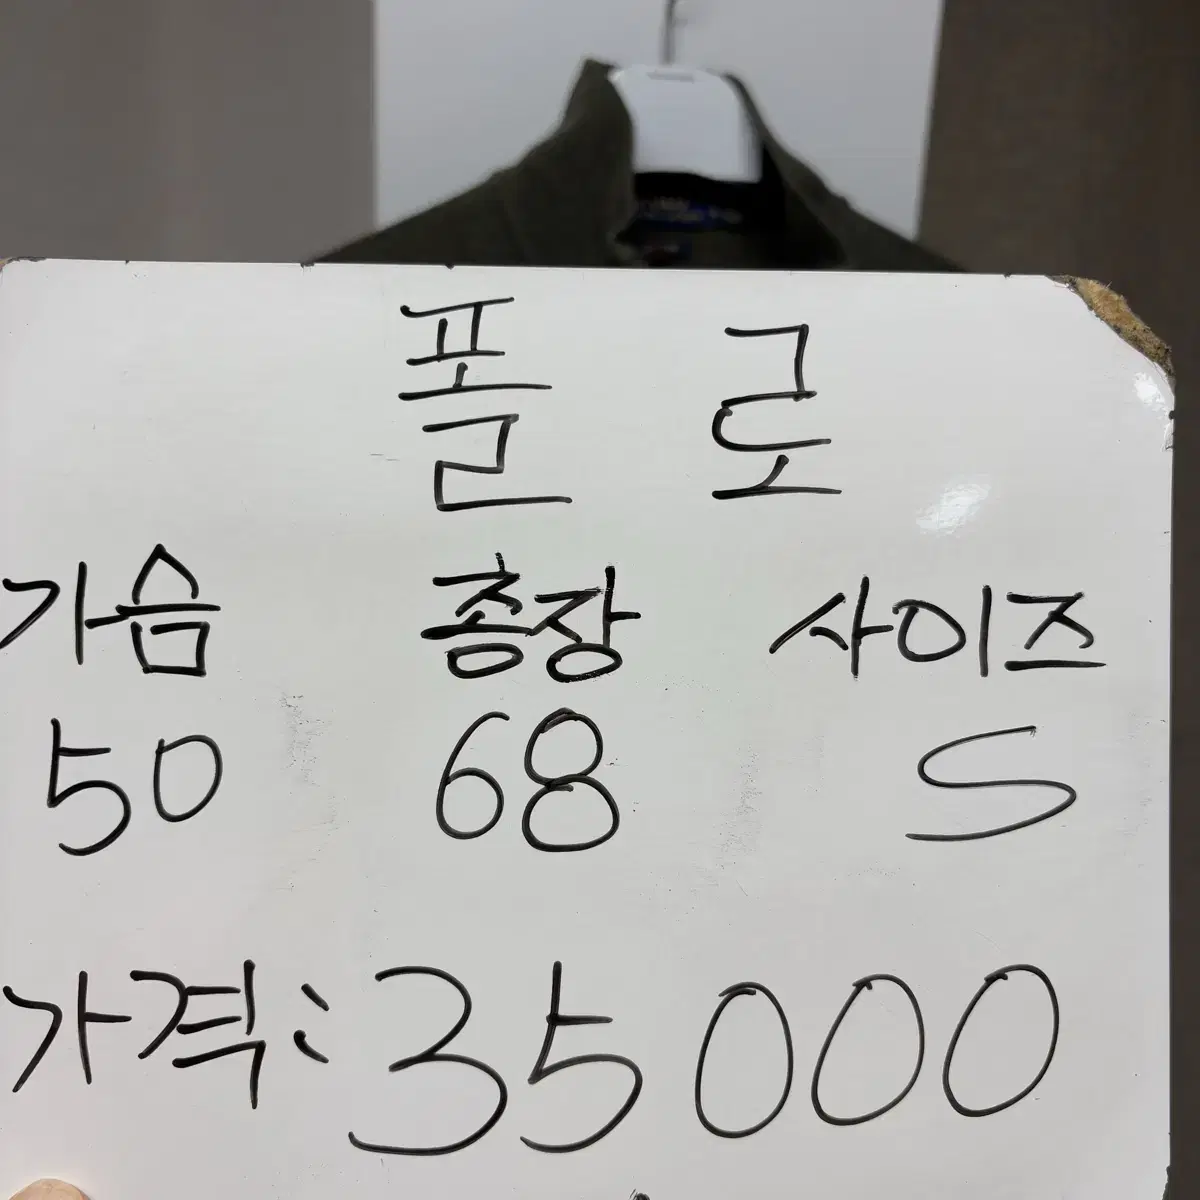 폴로
가슴 총장 사이즈
50 68 S
가격: 35000